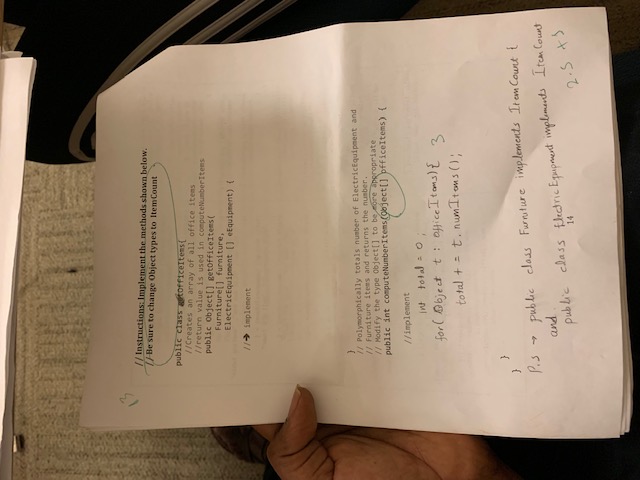 13
// Instructions: Implement the methods shown below.
// Be sure to change Object types to ItemCount
public class getOfficeItems{
//Creates an array of all office items
//return value is used in computeNumberItems
public Object[] getOfficeItems(
Furniture[] furniture,
ElectricEquipment [] eEquipment) {
//➔ implement
}
// Polymorphically totals number of ElectricEquipment and
// Furniture items and returns the number.
// Modify the type Object[] to be more appropriate
public int computeNumberItems(Object[] officeItems) {
//implement
int total = 0;
for( Object t : officeItems){ 3
total += t.numItems();
}
}
P.S → public class Furniture implements ItemCount {
and
public class ElectricEquipment implements ItemCount
14
2.5 +5